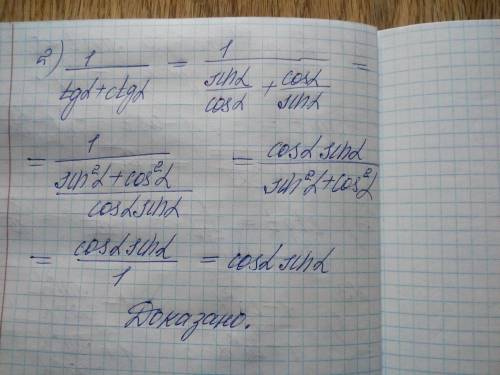 2) 1/(tgα+ctgα) = 1/(sinα/cosα + cosα/sinα) =
= 1/((sin²α+cos²α)/(cosα sinα)) = (cosα sinα)/(sin²α+cos²α)
= (cosα sinα)/1 = cosα sinα
Доказано.